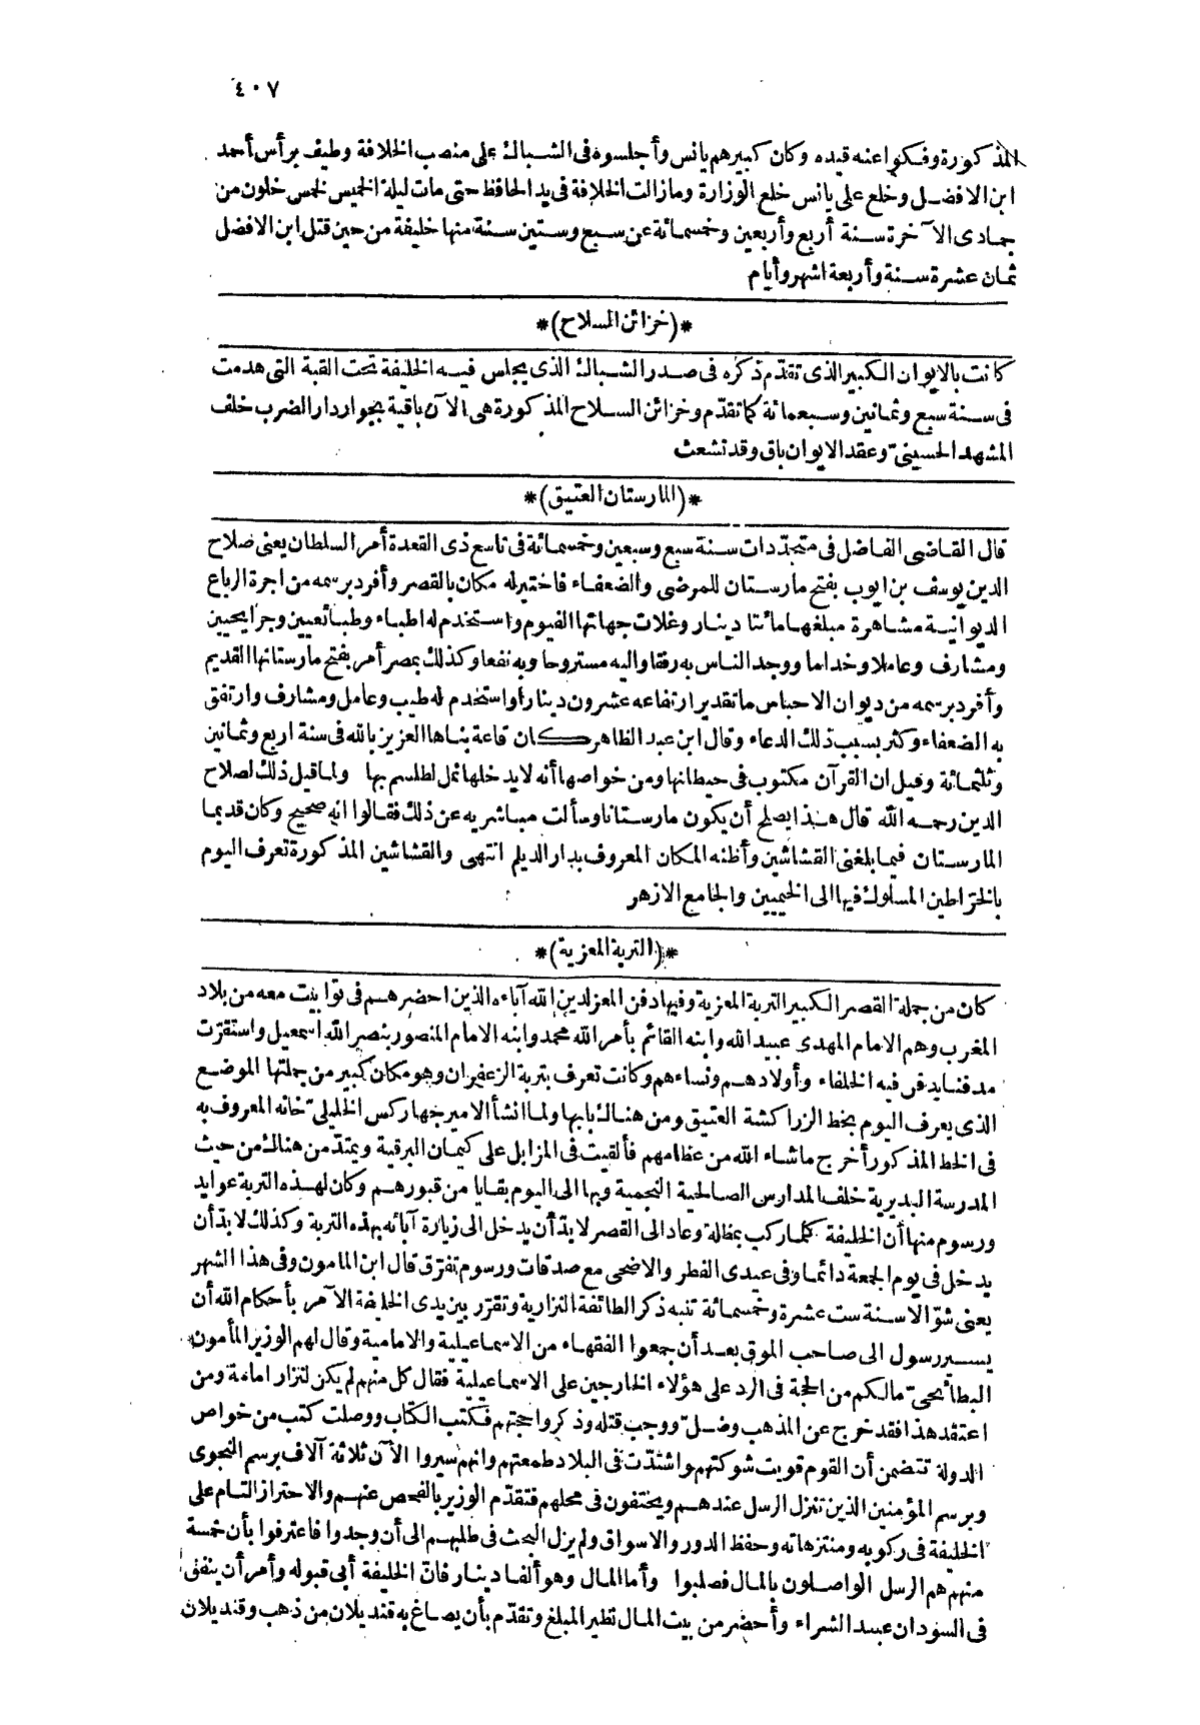 ٤٠٧
المذكورة وفكوا عنه قيده وكان كبيرهم يانس وأجلسوه فى الشباك على منصب الخلافة وطيف برأس أحمد
ابن الافضل وخلع على يانس خلع الوزارة ومازالت الخلافة فى يد الحافظ حتى مات ليلة الخميس لخمس خلون من
جمادى الآخرة سنة أربع وأربعين وخمسمائة عن سبع وستين سنة منها خليفة من حين قتل ابن الافضل
ثمان عشرة سنة وأربعة اشهر وأيام
*(خزائن السلاح)*
كانت بالايوان الكبير الذى تقدّم ذكره فى صدر الشباك الذى يجلس فيه الخليفة تحت القبة التى هدمت
فى سنة سبع وثمانين وسبعمائة كما تقدّم وخزائن السلاح المذكورة هى الآن باقية بجوار دار الضرب خلف
المشهد الحسينىّ وعقد الايوان باق وقد تشعث
*(المارستان العتيق)*
قال القاضى الفاضل فى متجدّدات سنة سبع وسبعين وخمسمائة فى تاسع ذى القعدة أمر السلطان يعنى صلاح
الدين يوسف بن ايوب بفتح مارستان للمرضى والضعفاء فاختير له مكان بالقصر وأفرد برسمه من اجرة الرباع
الديوانية مشاهرة مبلغها مائتا دينار وغلات جهاتها الفيوم واستخدم له اطباء وطبائعيين وجرايحيين
ومشارف وعاملا وخداما ووجد الناس به رفقا واليه مستروحا وبه نفعا وكذلك بمصر أمر بفتح مارستانها القديم
وأفرد برسمه من ديوان الاحباس ما تقدير ارتفاعه عشرون دينارا واستخدم له طبيب وعامل ومشارف وارتفق
به الضعفاء وكثر بسبب ذلك الدعاء وقال ابن عبد الظاهر كان قاعة بناها العزيز بالله فى سنة اربع وثمانين
وثلثمائة وقيل ان القرآن مكتوب فى حيطانها ومن خواصها أنه لا يدخلها نمل لطلسم بها ولما قيل ذلك لصلاح
الدين رحمه الله قال هذا يصلح أن يكون مارستانا وسألت مباشريه عن ذلك فقالوا انه صحيح وكان قديما
المارستان فيما بلغنى القشاشين وأظنه المكان المعروف بدار الديلم انتهى والقشاشين المذكورة تعرف اليوم
بالخرّاطين المسلوك فيها الى الخيميين والجامع الازهر
*(التربة المعزية)*
كان من جملة القصر الكبير التربة المعزية وفيها دفن المعز لدين الله آباءه الذين احضرهم فى توابيت معه من بلاد
المغرب وهم الامام المهدى عبيد الله وابنه القائم بأمر الله محمد وابنه الامام المنصور بنصر الله اسمعيل واستقرّت
مدفنا يدفن فيه الخلفاء وأولادهم ونساءهم وكانت تعرف بتربة الزعفران وهو مكان كبير من جملتها الموضع
الذى يعرف اليوم بخط الزراكشة العتيق ومن هناك بابها ولما انشأ الامير جهاركس الخليلىّ خانه المعروف به
فى الخط المذكور أخرج ماشاء الله من عظامهم فألقيت فى المزابل على كيمان البرقية ويمتدّ من هناك من حيث
المدرسة البديرية خلف المدارس الصالحية النجمية وبها الى اليوم بقايا من قبورهم وكان لهذه التربة عوايد
ورسوم منها أن الخليفة كلما ركب بمظلة وعاد الى القصر لابدّ أن يدخل الى زيارة آبائه بهذه التربة وكذلك لابدّ أن
يدخل فى يوم الجمعة دائما وفى عيدى الفطر والاضحى مع صدقات ورسوم تفرّق قال ابن المامون وفى هذا الشهر
يعنى شوّالا سنة ست عشرة وخمسمائة تنبه ذكر الطائفة النزارية وتقرّر بين يدى الخليفة الآمر بأحكام الله أن
يسير رسول الى صاحب الموت بعد أن جمعوا الفقهاء من الاسماعيلية والامامية وقال لهم الوزير المأمون
البطائحىّ مالكم من الحجة فى الرد على هؤلاء الخارجين على الاسماعيلية فقال كل منهم لم يكن لنزار امامة ومن
اعتقد هذا فقد خرج عن المذهب وضلّ ووجب قتله وذكروا حجتهم فكتب الكتاب ووصلت كتب من خواص
الدولة تتضمن أن القوم قويت شوكتهم واشتدّت فى البلاد طمعتهم وانهم سيروا الآن ثلاثة آلاف برسم النجوى
وبرسم المؤمنين الذين تنزل الرسل عندهم ويختفون فى محلهم فتقدّم الوزير بالفحص عنهم والاحتراز التام على
الخليفة فى ركوبه ومنتزهاته وحفظ الدور والاسواق ولم يزل البحث فى طلبهم الى أن وجدوا فاعترفوا بأن خمسة
منهم هم الرسل الواصلون بالمال فصلبوا وأما المال وهو ألفا دينار فانّ الخليفة أبى قبوله وأمر أن ينفق
فى السودان عبيد الشراء وأحضر من بيت المال نظير المبلغ وتقدّم بأن يصاغ به قنديلان من ذهب وقنديلان